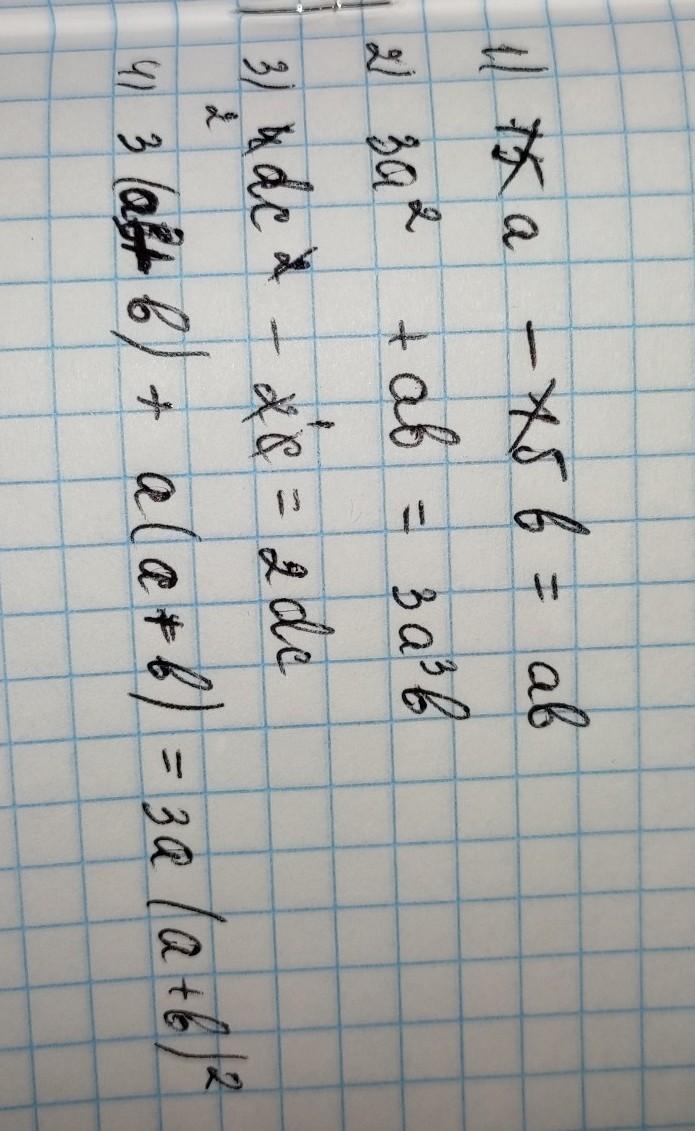 1) 15 a - 15 b = ab
2) 3a² + ab = 3a³b
3) 4dc 2 - 2c = 2dc
2 1
4) 3(a+b) + a(a+b) = 3a(a+b)²